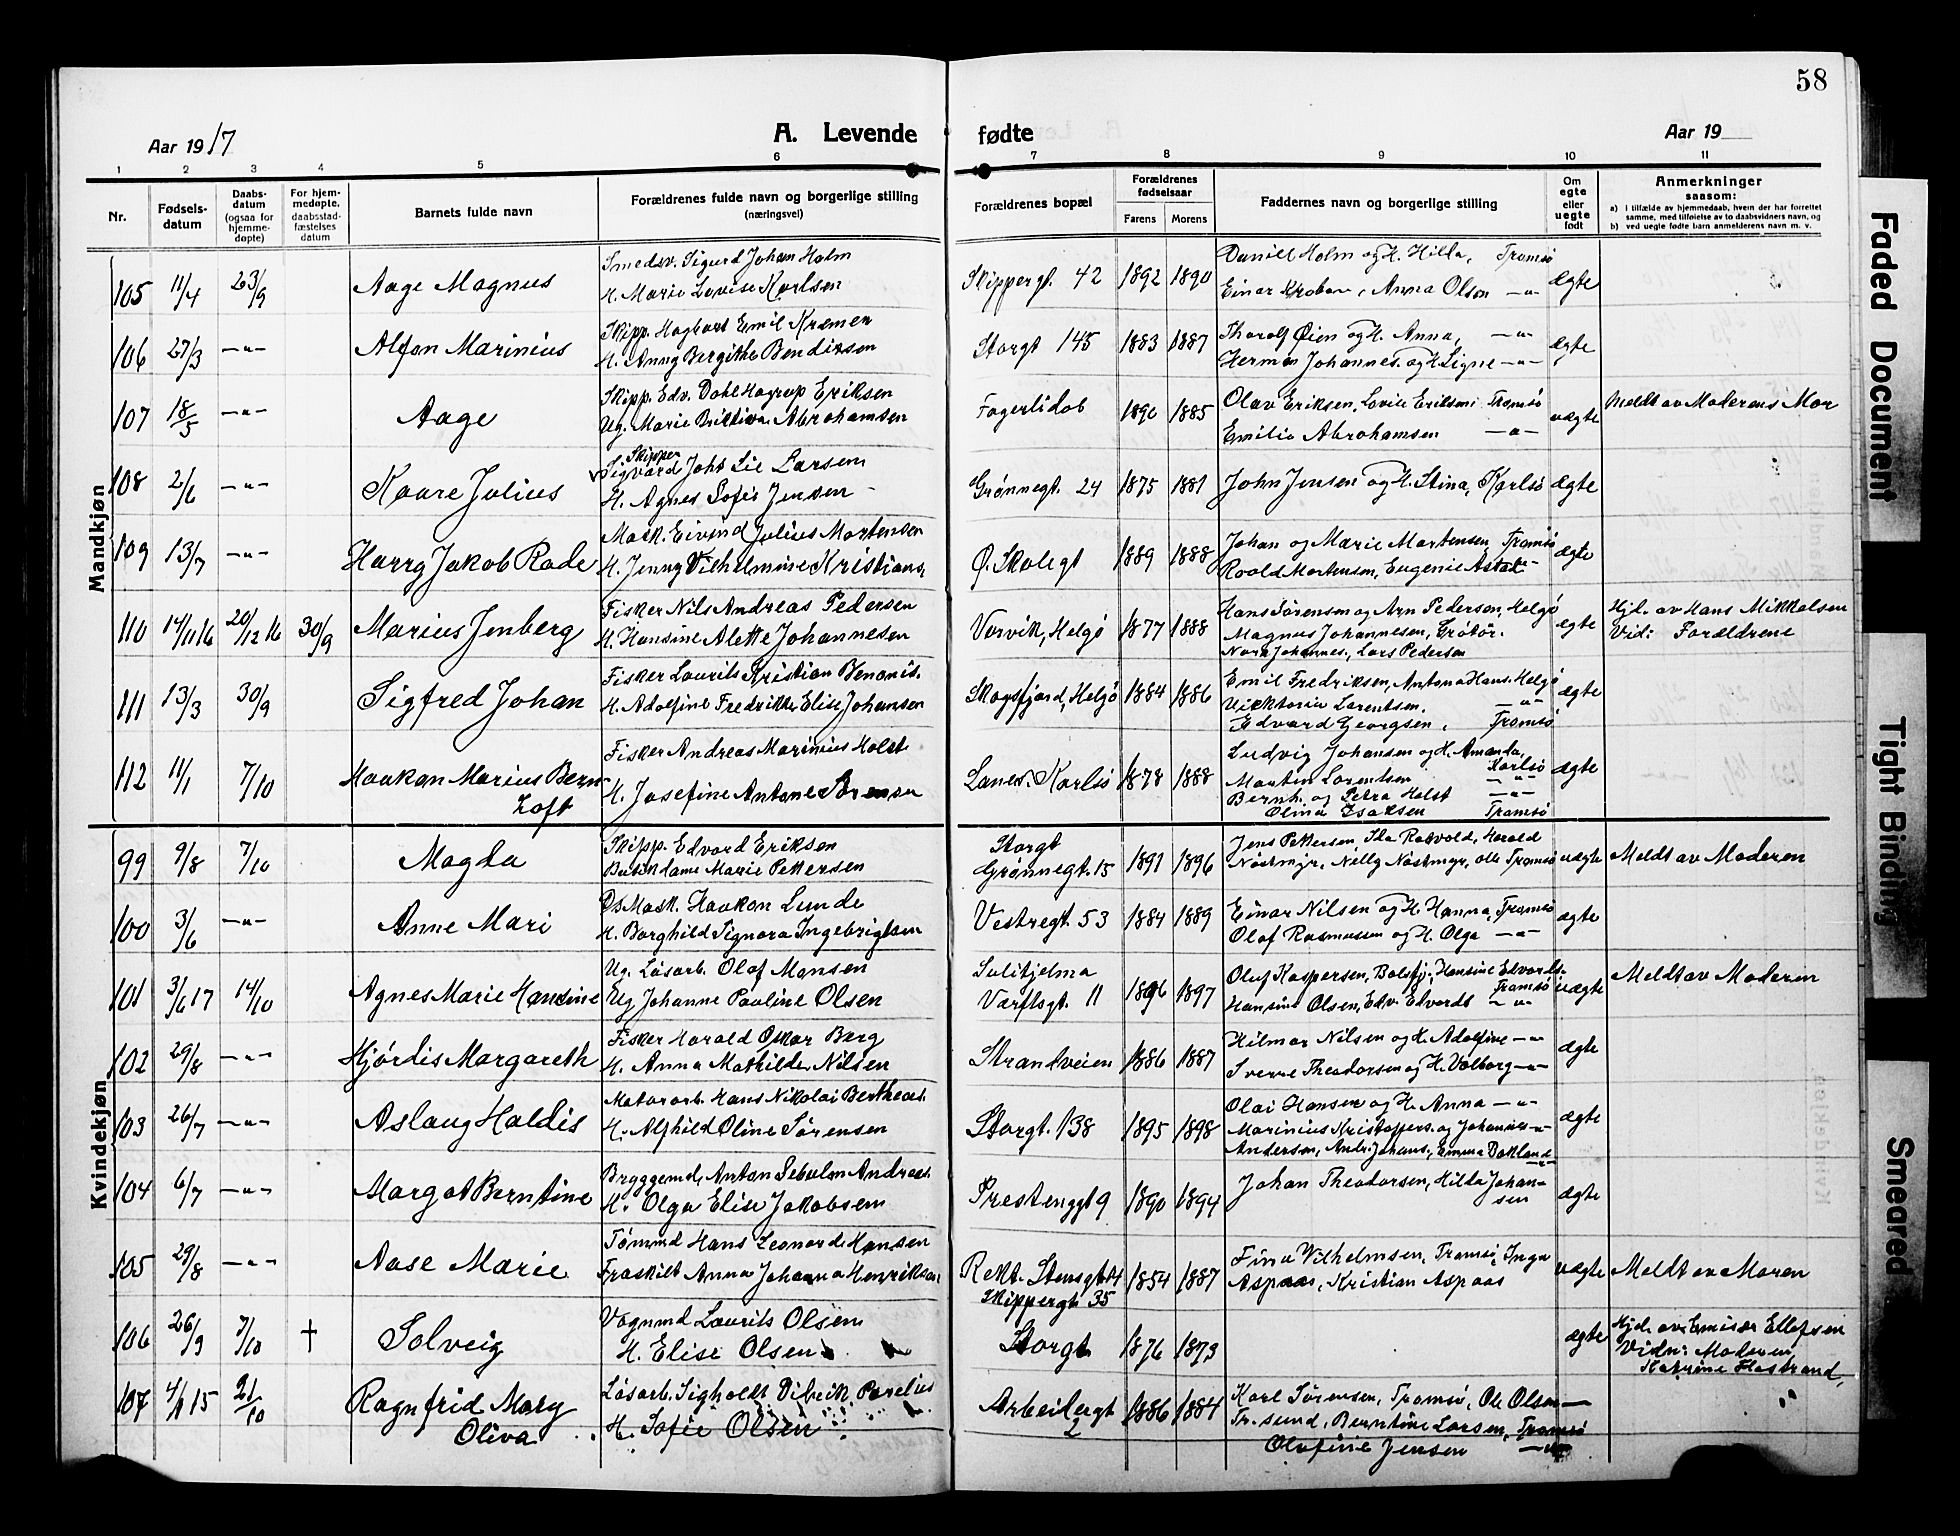 58
Aar 1917
A. Levende
fødte
Aar 19
1 2 3 4 5 6 7 8 9 10 11
Nr.
Fødsels-
datum
Daabs-
datum
(ogsaa for
hjemme-
døpte)
For hjem-
medøpte,
daabsstad-
fæstelses
datum
Barnets fulde navn
Forældrenes fulde navn og borgerlige stilling
(næringsvei)
Forældrenes bopæl
Forældrenes
fødselsaar
Farens Morens
Faddernes navn og borgerlige stilling
Om
egte
eller
uegte
født
Anmerkninger
saasom:
a) i tilfælde av hjemmedaab, hvem der har forrettet
samme, med tilføielse av to daabsvidners navn, og
b) ved uegte fødte barn anmelderens navn m. v.
Mandkjøn
105 11/4 23/9 Aage Magnus
Smedsv. Sigurd Johan Holm
H. Marie Lovise Karlsen
Skippergt. 42 1892 1890
Daniel Holm og H. Hilda, Tromsø
Einar Kroban, Anna Olsen -"-
ægte
106 27/3 -"- Alfon Marinius
Skipp. Hagbart Emil Kræmer
H. Anny Bergithe Bendixsen
Storgt 145 1883 1887
Thorolf Øien og H. Anna, -"-
Herman Johannes. og H. Signe -"-
ægte
107 18/5 -"- Aage
Skipp. Edv. Dahl Hagrup Eriksen
Ug. Marie Abrahamsen
1890 1885
Olav Eriksen, Lovise Eriksen Tromsø
Emilie Abrahamsen -"-
uægte
Meldt av Moderens Mor
108 2/6 -"- Kaare Julius
Skipper
Sigvard Joh. Lie Larsen
H. Agnes Sofie Jensen
Grønnegt. 24 1875 1881
John Jensen og H. Stina, Karlsø
ægte
109 13/7 -"- Harry Jakob Rode
Mask. Eivind Julius Mortensen
H. Jenny Vilhelmine Kristians.
Ø. Skolegt 1889 1888
Johan og Marie Mortensen, Tromsø
Roald Mortensen, Eugenie
ægte
110 14/11 16 20/12 16 30/9 Marius Jenberg
Fisker Nils Andreas Pedersen
H. Hansine Alette Johannesen
Vorvik, Helgø 1877 1888
Hans Sørensen og Arn Pedersen, Helgø
Magnus Johannesen, Grøtør.
Nora Johannes., Lars Pedersen
ægte
Hjd. av Hans Mikkelsen
Vid: Forældrene
111 13/3 30/9 Sigfred Johan
Fisker Laurits Kristian Benonis.
H. Adolfine Fredrikke Elise Johansen
Skogsfjord, Helgø 1884 1886
Emil Fredriksen, Antona Hans. Helgø
Vicktoria Lorentsen, -"-
Edvard Georgsen, Tromsø
ægte
112 11/1 7/10 Haakon Marius Bern-
Loft
Fisker Andreas Marinius Holst
H. Josefine Antone Sørensen
Lanes. Karlsø 1878 1888
Ludvig Johansen og H. Amanda,
Karlsø
Morten Lorentsen -"-
Bernh. og Petra Holst -"-
Olina Isaksen Tromsø
ægte
Kvindekjøn
99 9/8 7/10 Magda
Skipp. Edvard Eriksen
Butikdame Marie Pettersen
Storgt
Grønnegt. 15 1891 1896
Jens Pettersen, Ida Rotvold, Harald
Nøstmyr, Nelly Nøstmyr, alle Tromsø
uægte
Meldt av Moderen
100 3/6 -"- Anne Mari
DsMask. Haakon Lunde
H. Borghild Signora Ingebrigtsen
Vestregt. 53 1884 1889
Einar Nilsen og H. Hanna, Tromsø
Olaf Rasmussen og H. Olga -"-
ægte
101 3/6 17 14/10 Agnes Marie Hansine
Ug. Løsarb. Olaf Monsen
Ug Johanne Pauline Olsen
Sulitjelma
Værftsgt. 11 1896 1897
Oluf Kaspersen, Balsfj. Hansine Edvards.
Tromsø
Hansine Olsen, Edv. Edvards -"-
uægte
Meldt av Moderen
102 29/8 -"- Hjørdis Margareth
Fisker Harald Oskar Berg
H. Anna Mathilde Nilsen
Strandveien 1886 1887
Hilmar Nilsen og H. Adolfine -"-
Sverre Theodorsen og H. Valborg -"-
ægte
103 26/7 -"- Aslaug Haldis
Motorarb. Hans Nikolai Bertheas.
H. Alfhild Oline Sørensen
Storgt. 138 1895 1898
Olai Hansen og H. Anna -"-
Marinius Kristoffers. og Johannes -"-
Andersen, Andr. Johans., Emma Dokland
-"-
ægte
104 6/7 -"- Margot Berntine
Bryggemd. Anton Sebulon Andreas.
H. Olga Elise Jakobsen
Prestengt 9 1890 1894
Johan Theodorsen, Hilda Johan-
sen
ægte
105 29/8 -"- Aase Marie
Tømmd Hans Leonard Hansen
Fraskilt Anna Johanna Henriksen
Rekt. Stensgt 14
Skippergt. 35 1854 1887
Fina Vilhelmsen, Tromsø, Inga
Aspaas, Kristian Aspaas
uægte
Meldt av Moren
106 26/9 7/10 † Solveig
Vognmd Laurits Olsen
H. Elise Olsen
Storgt 1876 1873
ægte
Hjd. av Emisær Ellefsen
Vidn: Moderen
Katrine Hastrand,
107 15 21/10 Ragnfrid Mary
Oliva
Løsarb. Sigholdt Didrik Parelius
H. Sofie Olsen
Arbeidergt
2 1886 1884
Karl Sørensen, Tromsø, Ole Olsen
Tr.sund, Berntine Larsen, Tromsø
Olufine Jensen -"-
Faded Document
Tight Binding
Smeared